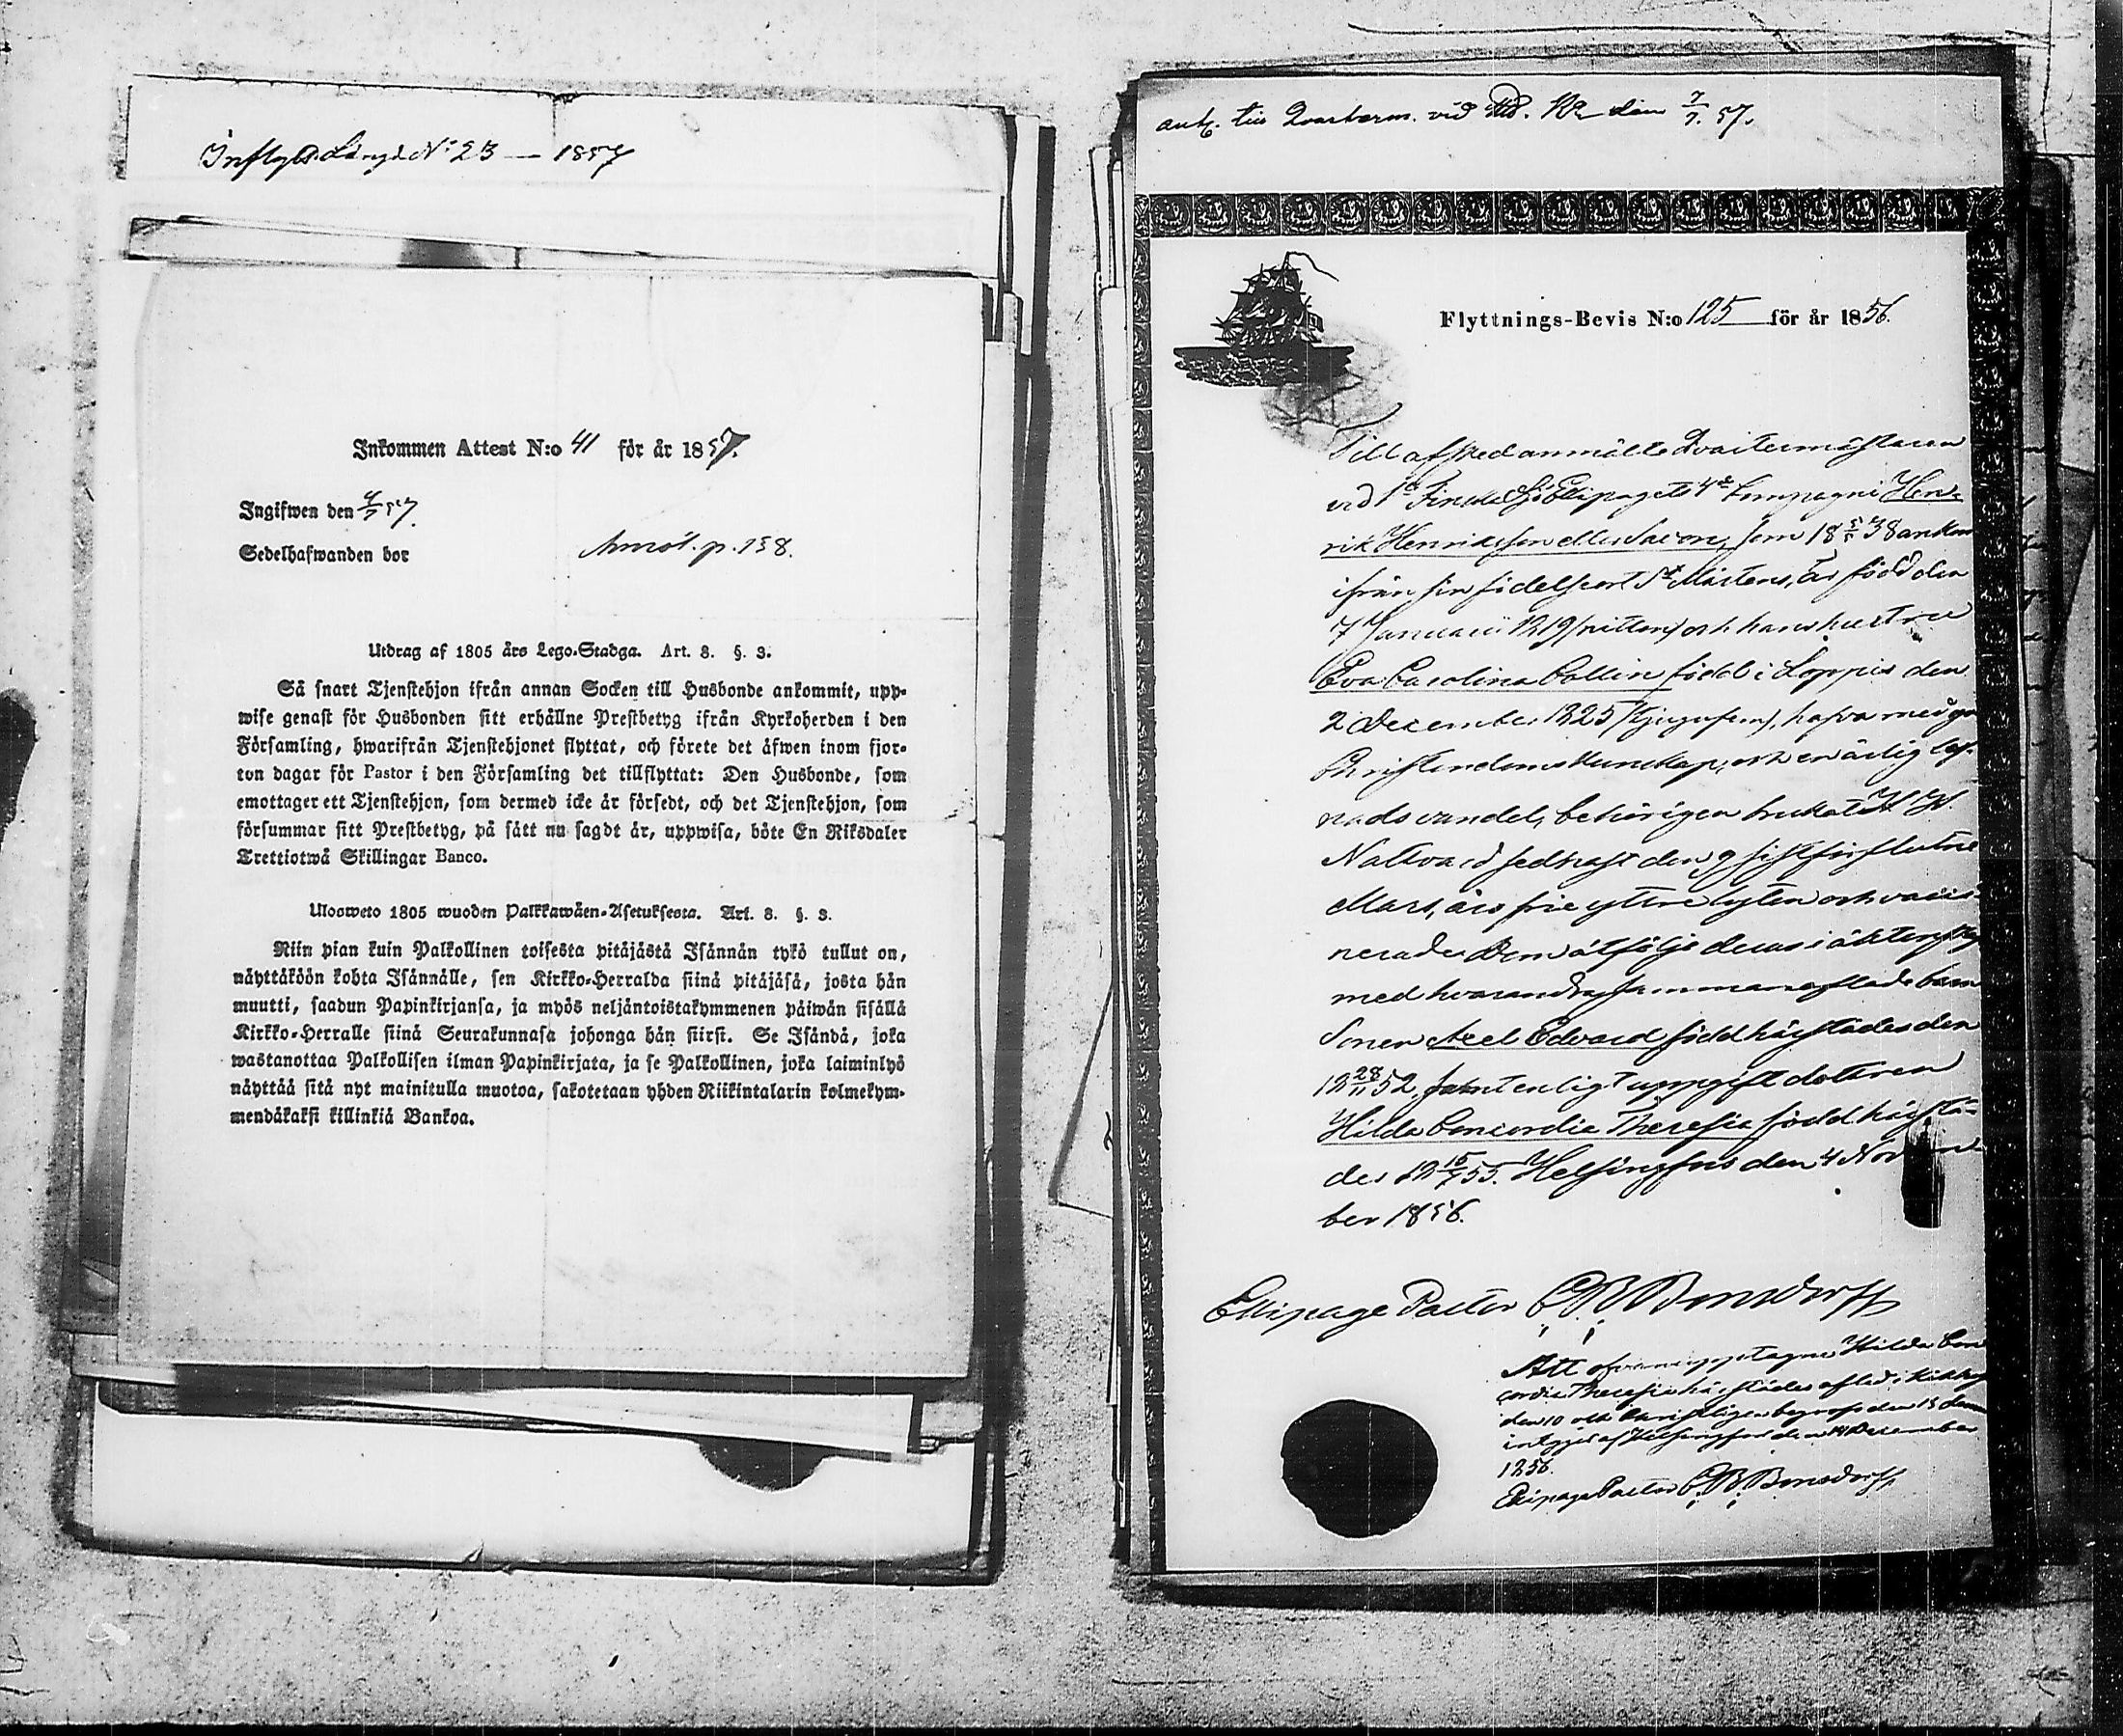 Inflytt. Längd N:o 23 — 1857
Inkommen Attest N:o 41 för år 1857.
Ingifwen den 4/7 57.
Sedelhafwanden bor
Annot. p. 138.
Utdrag af 1805 års Lego-Stadga. Art. 8. §. 3.
Så snart Tjenstehjon ifrån annan Socken till Husbonde ankommit, upp-
wise genast för Husbonden sitt erhållne Prestbetyg ifrån Kyrkoherden i den
Församling, hwarifrån Tjenstehjonet flyttat, och förete det äfwen inom fjor-
ton dagar för Pastor i den Församling det tillflyttat: Den Husbonde, som
emottager ett Tjenstehjon, som dermed icke är försedt, och det Tjenstehjon, som
försummar sitt Prestbetyg, på sätt nu sagdt är, uppwisa, böte En Riksdaler
Trettiotwå Skillingar Banco.
Ulosweto 1805 wuoden Palkkawäen-Asetuksesta. Art. 8. §. 3.
Niin pian kuin Palkollinen toisesta pitäjästä Isännän tykö tullut on,
näyttäköön kohta Isännälle, sen Kirkko-Herralda siinä pitäjäsä, josta hän
muutti, saadun Papinkirjansa, ja myös neljäntoistakymmenen päiwän sisällä
Kirkko-Herralle siinä Seurakunnasa johonga hän siirsi. Se Isändä, joka
wastanottaa Palkollisen ilman Papinkirjata, ja se Palkollinen, joka laiminlyö
näyttää sitä nyt mainitulla muotoa, sakotetaan yhden Riikintalarin kolmekym-
mendäkaksi killinkiä Bankoa.
ant. till Qvarterm. vid den 7/7. 57.
Flyttnings-Bevis N:o 125 för år 1856.
Till afsked anmälte Qvartermästaren
vid 1a Finska Sjö Ekipagets 4de Compagni Hen-
rik Henriksson eller Saxon, som 18 5/11 38 ankom
ifrån sin födelseort St Mårtens, är född den
7 Januarii 1819 (nitton) och hans hustru
Eva Carolina Collin född i Loppis den
2 December 1825 (tjugufem), hafva med god
Christendomskunskap, och en ärlig lef-
nadsvandel, behörigen brukat H. H.
Nattvard sednast den 9 sistförflutne
Mars, äro frie yttre lyten och vacci-
nerade. Dem åtfölja deras i äktenskap
med hvarandra sammanaflade barn
Sonen Axel Edvard född härstädes den
18 28/11 52, samt enligt uppgift dottren
Hilda Concordia Theresia född härstä-
des 18 15/7 55. Helsingfors den 4 Novem-
ber 1856.
Ekipage Pastor C. R. Bonsdorff
Att ofvanupptagne Hilda Con-
cordia Theresia härstädes aflidit
den 10 och Christligen begrofs den 15 dennes
intygas af Helsingfors den December
1856.
Ekipage Pastor C. R. Bonsdorff